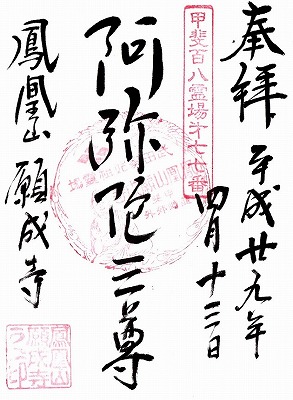 奉拝
平成廿九年
四月十三日
甲斐百八霊場第七七番
阿弥陀三尊
鳳凰山
願成寺
鳳凰山願成寺